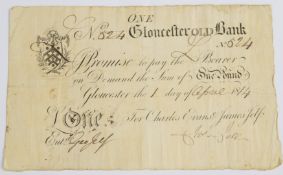 ONE
No. 824 Gloucester OLD Bank
No 824
I Promise to pay the Bearer
on Demand the Sum of One Pound
Gloucester the 1 day of 1814
£ One For Charles Evans & James Jelf
Entd